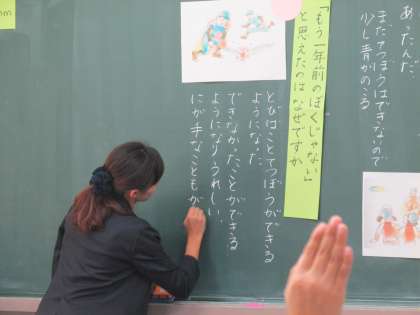 あったんだ
まだてつぼうはできないので
少し青がのこる
「もう一年前のぼくじゃない」
と思えたのは なぜですか
とびばことてつぼうができる
ようになった
できなかったことができる
ようになりうれしい。
にが手なこともが